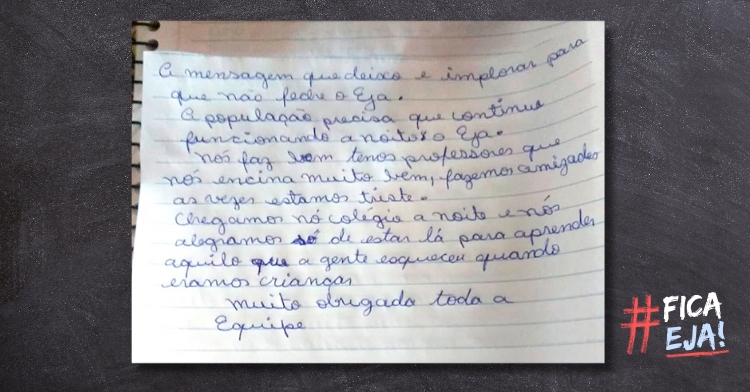 A mensagem que deixo e implorar para
que não feche o Eja.
A população precisa que continue
funcionando a noite o Eja.
nós faz bem temos professores que
nós encina muito bem, fazemos amizades
as vezes estamos triste.
Chegamos nó colégio a noite e nós
alegramos só de estar lá para aprender
aquilo que a gente esqueceu quando
eramos crianças
muito obrigada toda a
Equipe
#FICA
EJA!